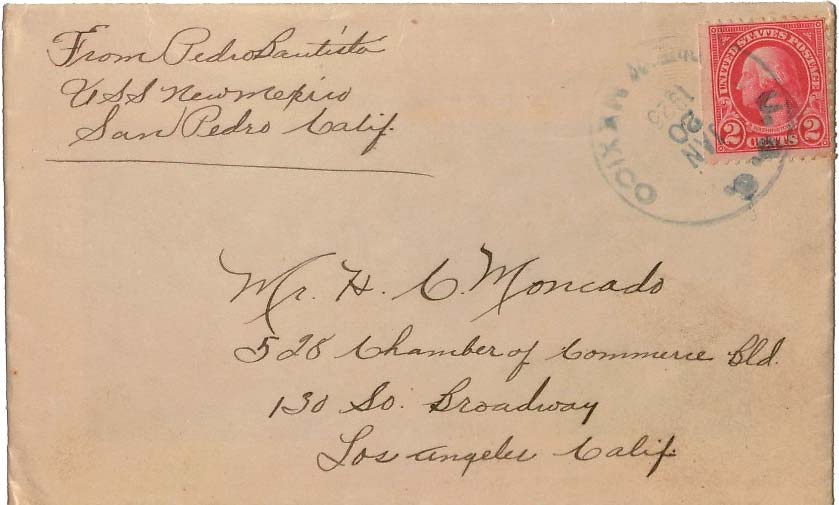 From Pedro Bautista
USS New Mexico
San Pedro Calif.
UNITED STATES POSTAGE
2 CENTS 2
MEXICO
JAN
20
1925
Mr. H. C. Moncado
528 Chamber of Commerce Bld.
130 So. Broadway
Los Angeles Calif.